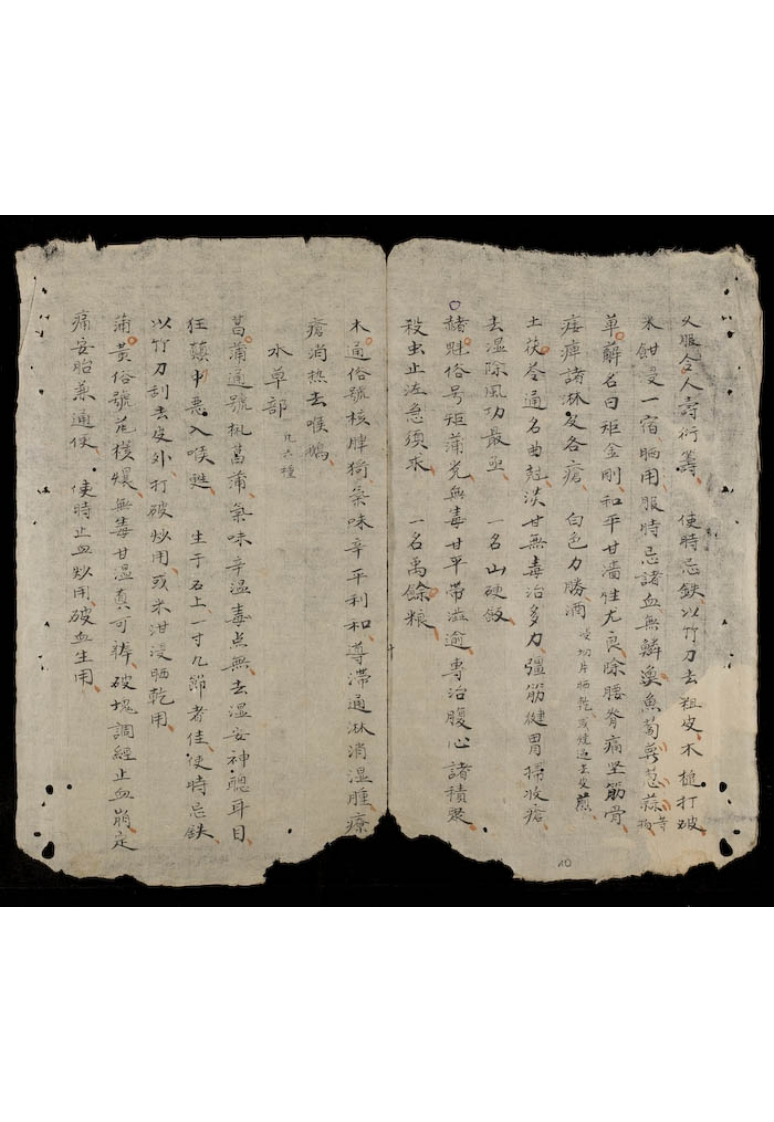 久服令人壽衍籌　使時忌鉄以竹刀去粗皮木槌打破
米泔浸一宿晒用服時忌諸血無鱗魚蔔葱蒜等物
萆薢名曰矩金剛和平甘濇性尤良除腰脊痛坚筋骨
痿痺諸淋及各瘡　白色力勝酒浸切片晒乾或
土茯苓通名曲尅淡甘無毒治多力彊筋健胃掃收瘡
去湿除風功最亟　一名山硬飯
赭魁俗号矩蒲羌無毒甘平帶滋逾專治腹心諸積聚
殺虫止泣急須求　一名禹餘粮
木通俗號核脾猗氣味辛平利和導滯通淋消湿腫療
瘡消热去喉鵝
水草部 凡六種
菖蒲通號枛菖蒲氣味辛温毒点無去湿安神聰耳目
狂蘋中悪入喉甦　生于石上一寸九節者佳使時忌鉄
以竹刀刮去皮外打破炒用或米泔浸晒乾用
蒲黄俗號芘檴㸐無毒甘温真可裤破塊調經止血崩定
痛安胎兼通便　使時止血炒用破血生用
十
10